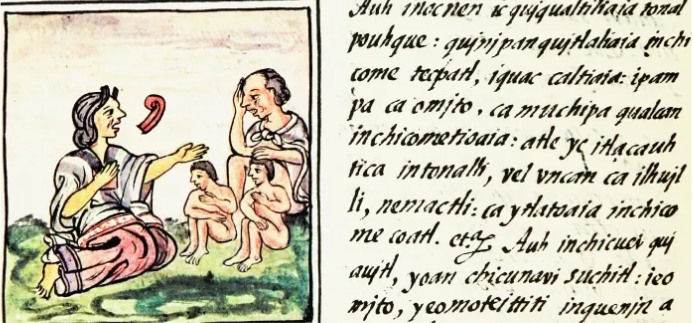 Auh inocnen ic quiqualtiliaia tonal
pouhque: quinipanquitlaliaia inchi
come tecpatl, iquac caltiaia: ipam
pa ca omito, ca muchipa qualcan
inchicometioaia: atle yc itlacauh
tica intonalli, vel vncan ca ilhuil
li, nemactli: ca ytlatoaia inchico
me coatl. etc̃ Auh inchicuei qui
auitl, yoan chicunavi suchitl: ieo
mito, yeomoteittiti inquenin a